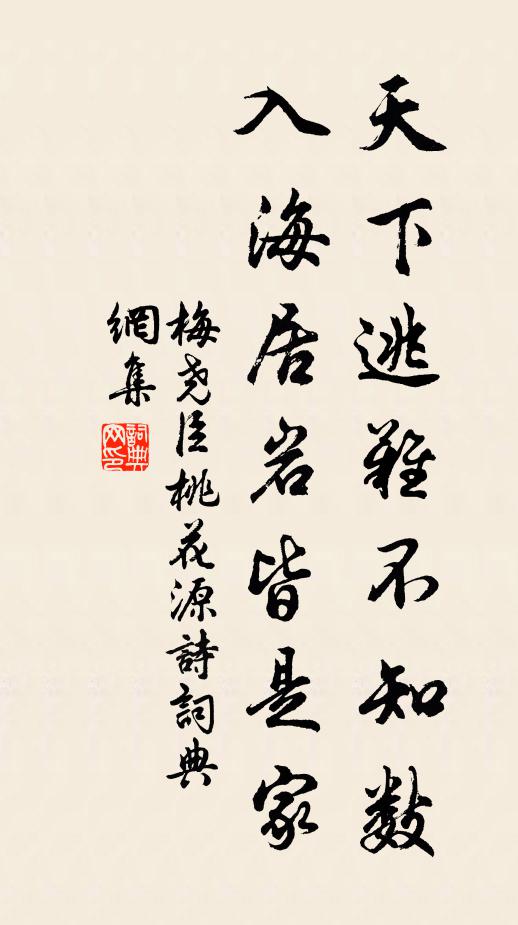 天下逃難不知數
入海居岩皆是家
梅堯臣桃花源詩詞典
網集
詞典
網印